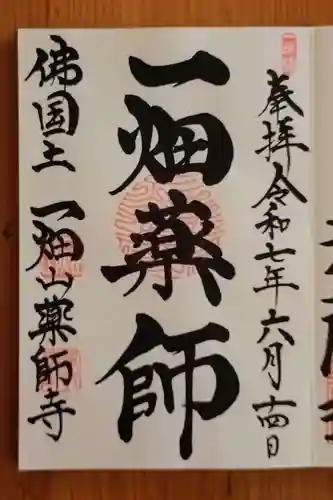 奉拝 令和七年六月十四日
一畑薬師
佛国土 一畑山薬師寺